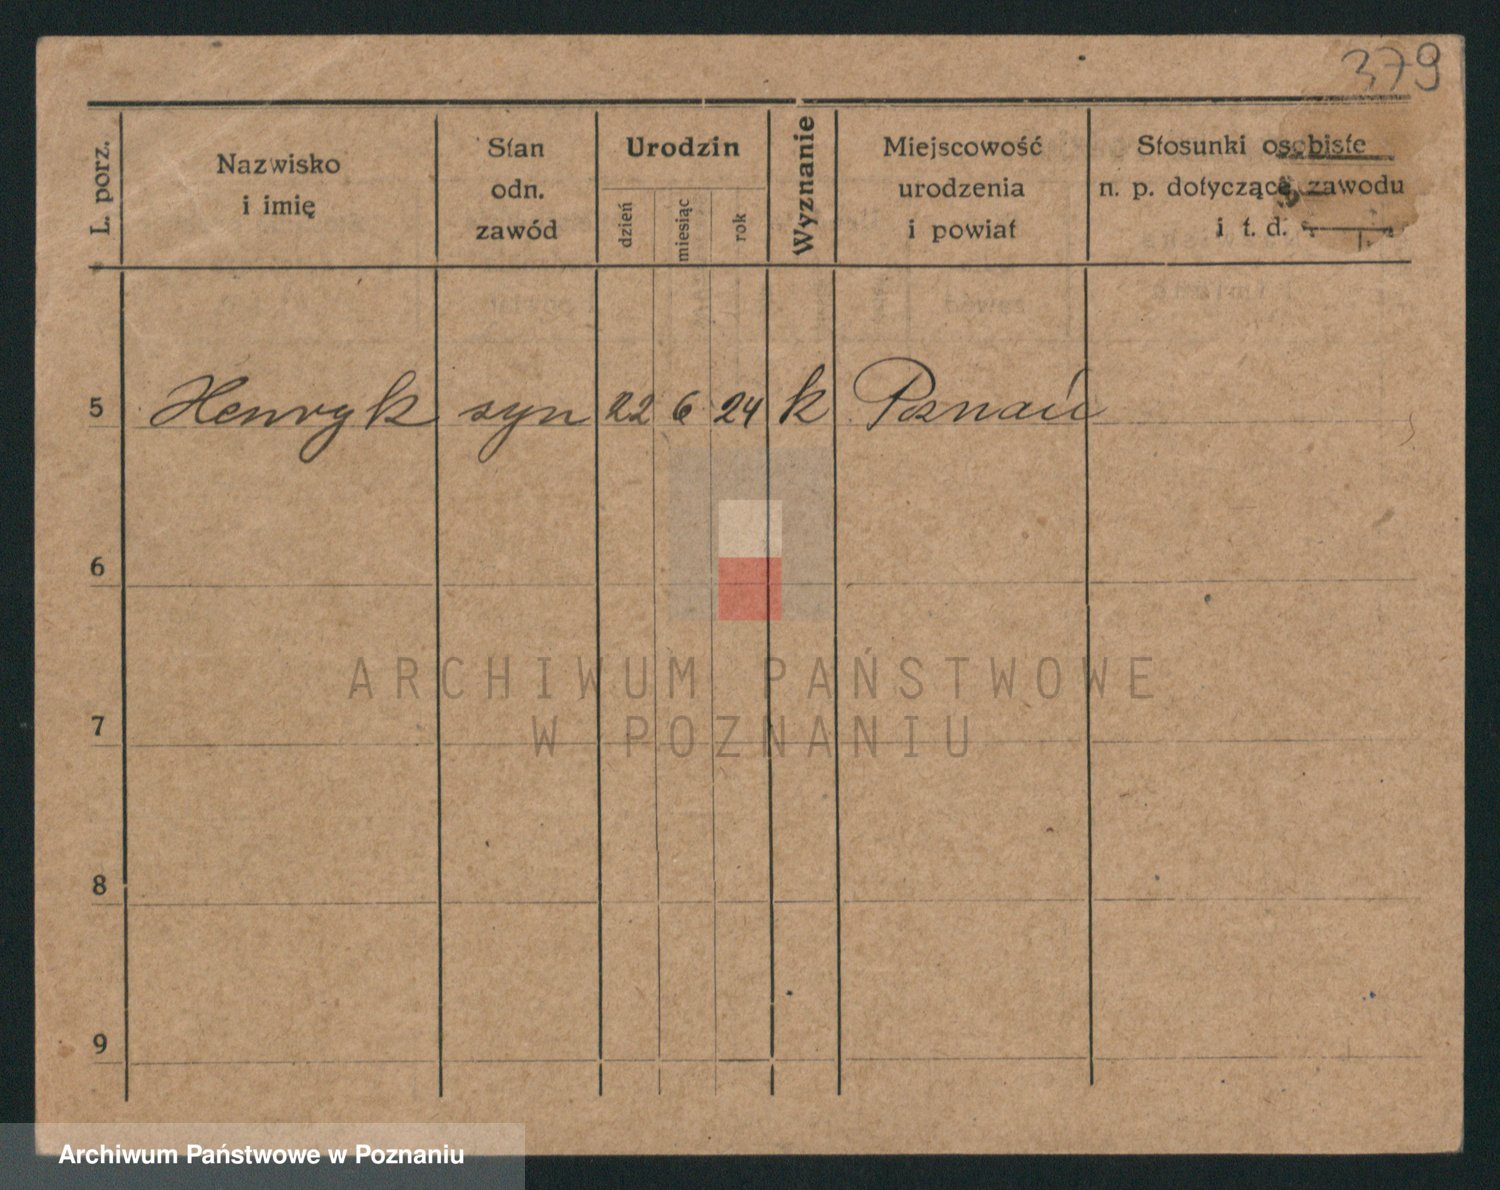 379
L. porz.
Nazwisko
i imię
Stan
odn.
zawód
Urodzin
dzień
miesiąc
rok
Wyznanie
Miejscowość
urodzenia
i powiat
Stosunki osobiste
n. p. dotyczące zawodu
i t. d.
5 Henryk syn 22 6 24 k Poznań
6
7
8
9
ARCHIWUM PAŃSTWOWE
W POZNANIU
Archiwum Państwowe w Poznaniu